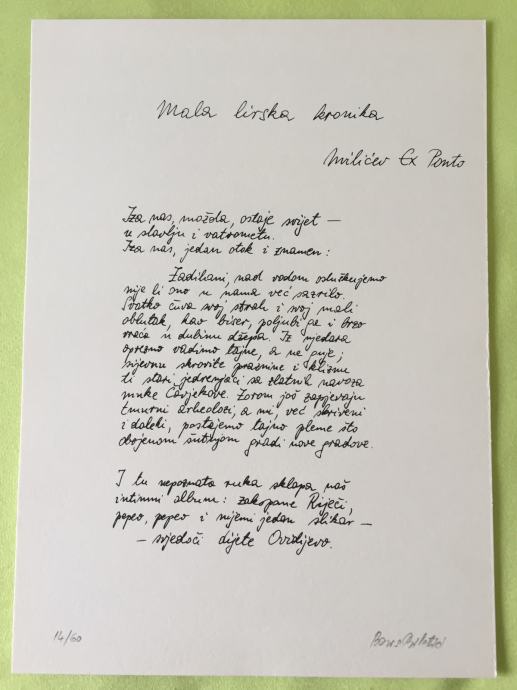 Mala lirska kronika
Milićev Ex Ponto
Iza nas, možda, ostaje svijet —
u slavlju i vatrometu.
Iza nas, jedan otok i znamen:
Zadihani, nad vodom osluškujemo
nije li ono u nama već sazrilo.
Svatko čuva svoj strah i svoj mali
oblutak, kao biser, poljubi ga i brzo
vraća u dubinu džepa. Iz njedara
oprezno vadimo tajne, a ne guje;
sijevnu skrovite praznine i kliznu
ti stari jedrenjaci sa zlatnih navoza
muke Čovjekove. Zorom još zapjevaju
tmurni arheolozi, a mi, već skriveni
i daleki, postajemo tajno pleme što
obojenom šutnjom gradi nove gradove.
I tu nepoznata ruka sklapa naš
intimni album: zakopane Riječi,
pepeo, pepeo i nijemi jedan slikar —
— svjedoči dijete Ovidijevo.
14/60